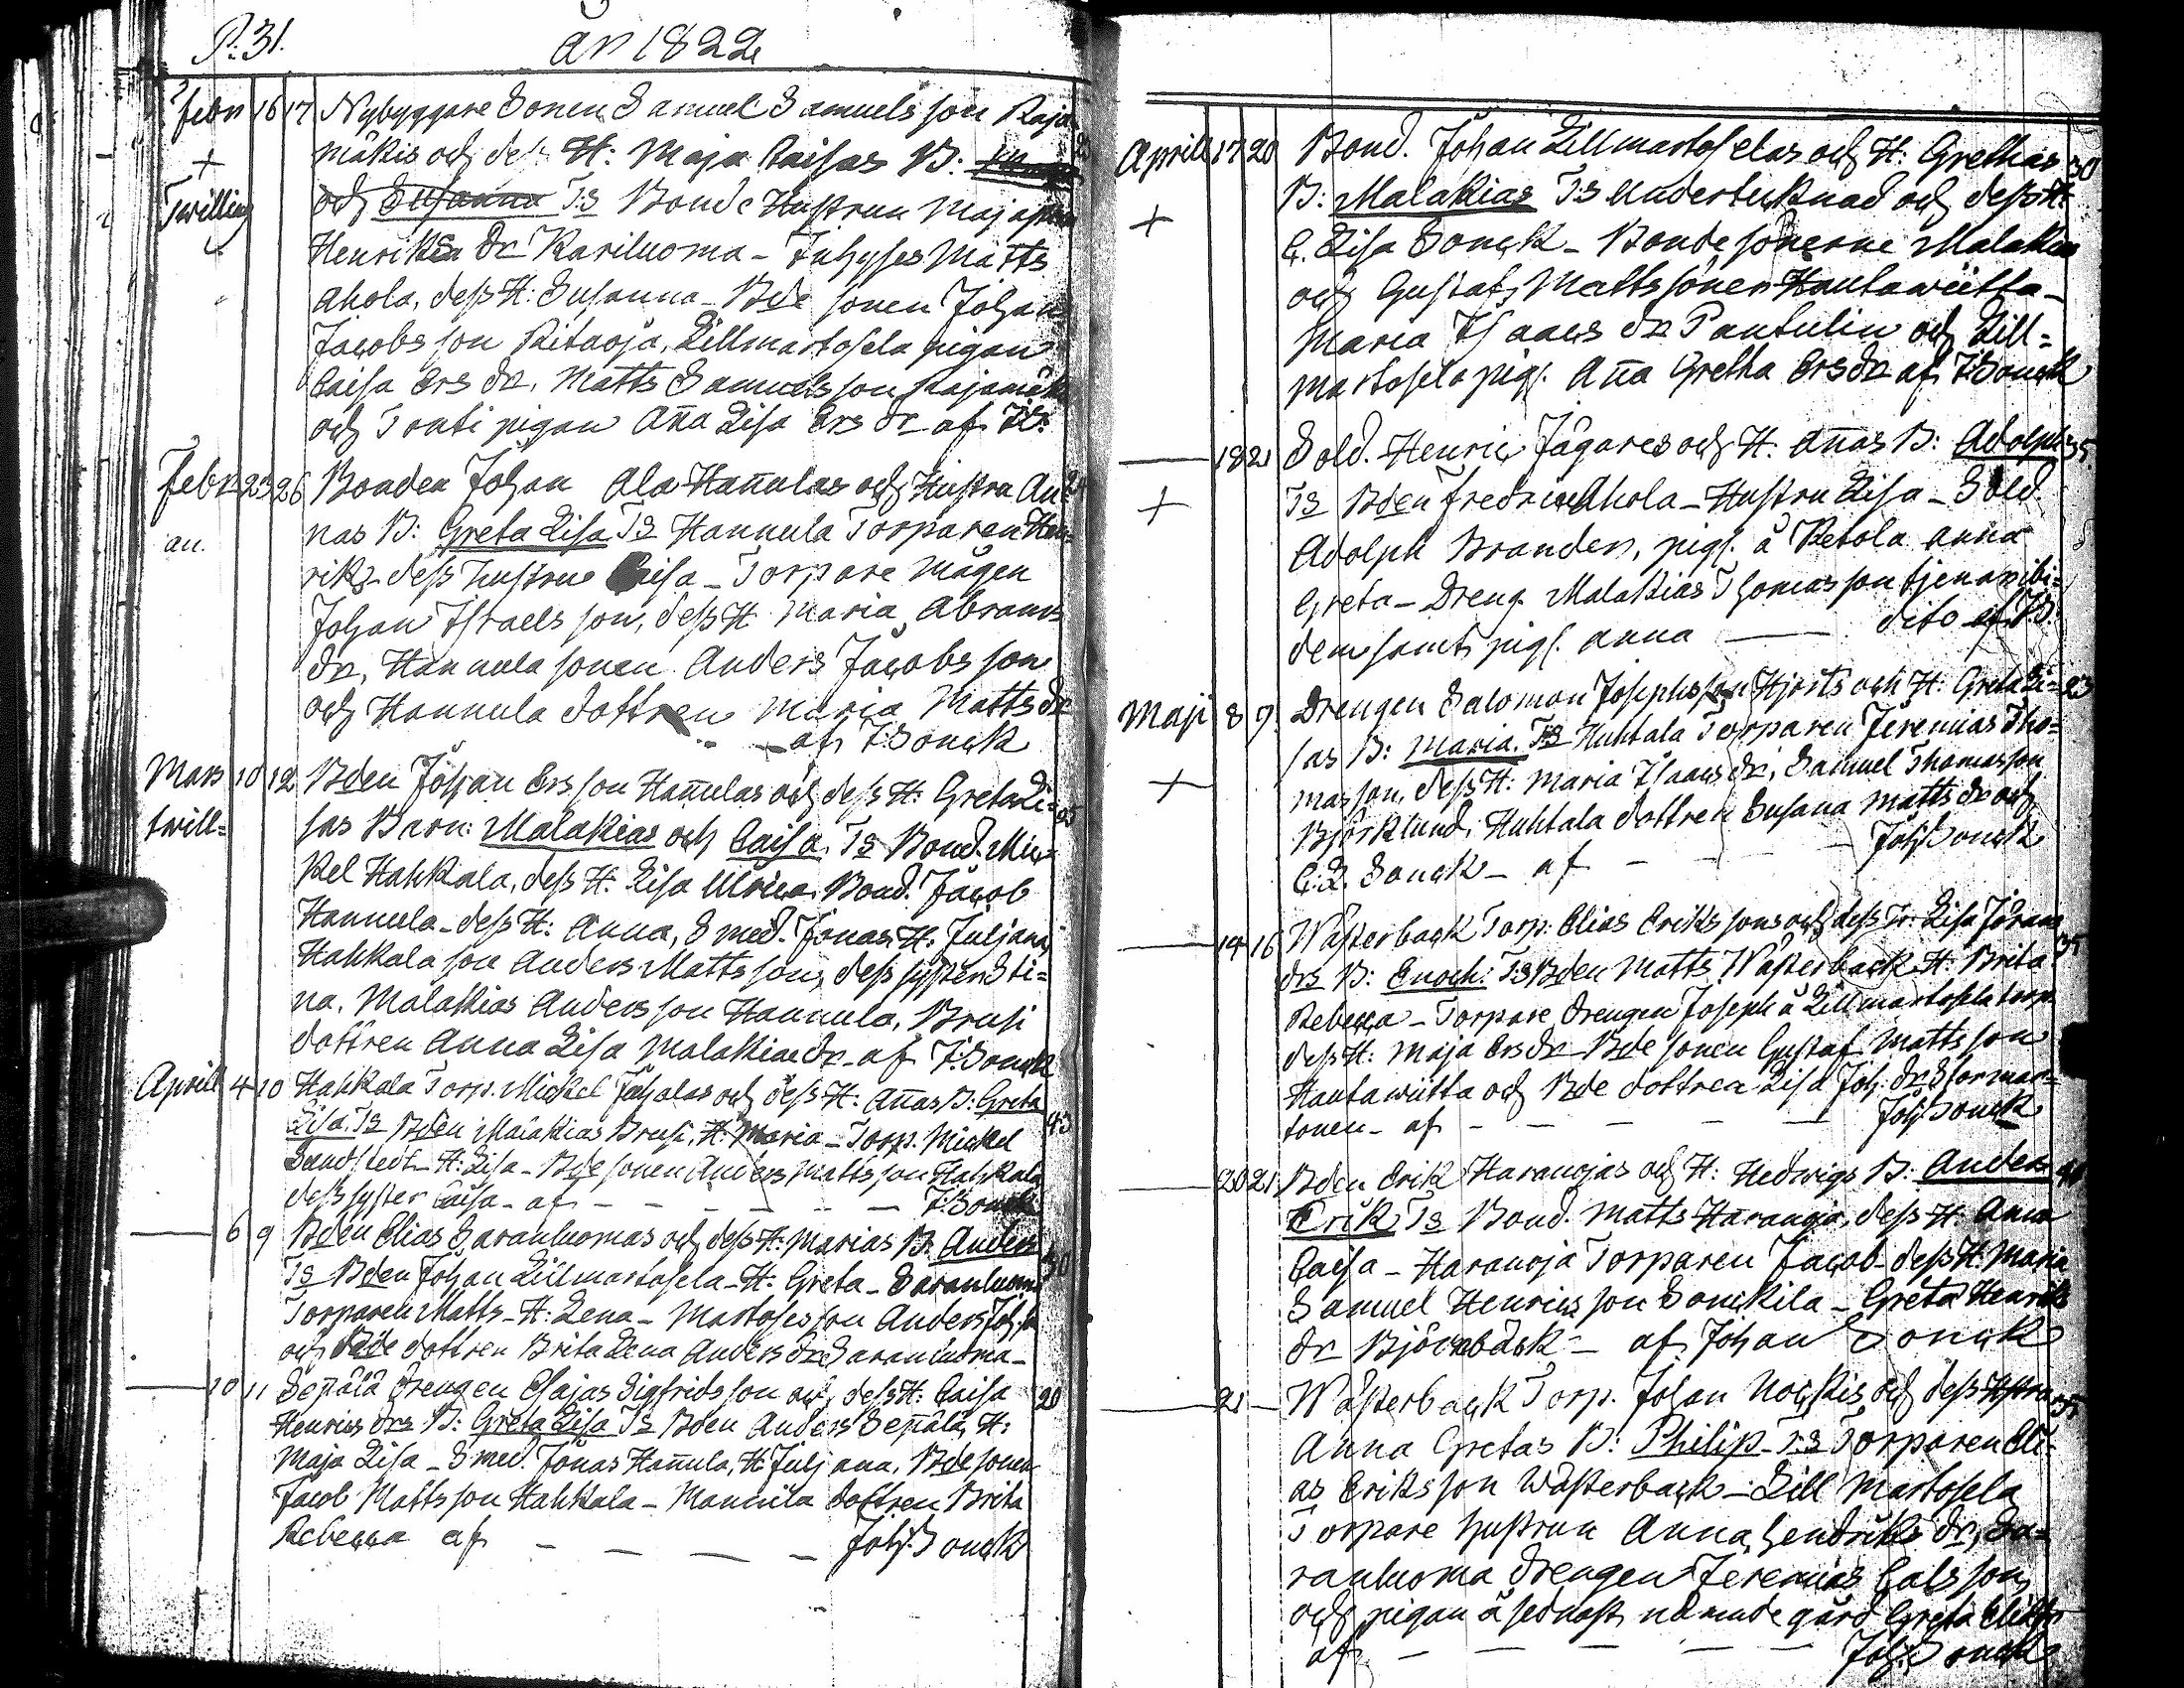 P. 31. År 1822
Febr 16 17 Nybyggare Sonen Samuel Samuelsson Raja
+ mäkis och dess H: Maja Caisas B:
Twilling och Susanna Ts Bonde Hustrun Maja
Henriks dr Kariluoma - Inhyses Matts
Ahola, dess H: Susanna - Bde sonen Johan
Jacobsson Ritaoja, Lillmartosela pigan
Caisa Ers dr, Matts Samuelsson Rajamäki
och Tonti pigan Aña Lisa Ers dr af J:S:
Febr 23 26 Bonden Johan Ala Hañulas och Hustru An 24
an. nas B: Greta Lisa Ts Hannula Torparen Hen=
rik, dess hustru Caisa - Torpare mågen
Johan Israelsson, dess H. Maria Abrams
dr, Hannula sonen Anders Jacobsson
och Hannula dottren Maria Matts dr
af J:Sonck
Mars 10 12 Bden Johan Ersson Hañulas och dess H: Greta Li= 25
twill= sas Barn: Malakias och Caisa. Ts Bond. Mic=
kel Hahkala, dess H: Lisa Ulrica, Bond. Jacob
Hannula - dess H: Anna, Smed. Jonas H: Juljana,
Hahkala son Anders Mattsson, dess syster Sti=
na, Malakias Andersson Hannula, Brusi
dottren Anna Lisa Malakiae dr - af J:Sonck
Aprill 4 10 Hahkala Torp. Mickel Juholas och dess H: Añas B: Greta
Lisa. Ts Bden Malakias Brusi, H: Maria - Torp. Mickel 43
Sandstedt - H: Lisa - Bde sonen Anders Mattsson Hahkala
dess syster Caisa - af - - - - - J:Sonck
— 6 9 Bden Elias Saranluomas och dess H: Marias B: Anders
Ts Bden Johan Lillmartosela - H: Greta - Saranluoma 30
Torparen Matts - H: Lena - Martosesson Anders Joh.s.
och Bde dottren Brita Lena Anders dr Saranluoma -
— 10 11 Sepälä Drengen Esajas Sigfridsson och dess H: Caisa 20
Henrics drs B: Greta Lisa Ts Bden Anders Sepälä, H:
Maja Lisa - Smed. Jonas Hañula, H: Juljana, Bde sonen
Jacob Mattsson Hahkala - Mannila dottren Brita
Rebecca af - - - - Joh: Sonck
Aprill 17 20 Bond. Johan Lillmartoselas och H: Grethas 30
+ B: Malakias Ts Undertecknad och dess H:
C. Lisa Sonck - Bonde sönerne Malakias
och Gustaf Mattssöner Hautawiitta -
Maria Isaacs dr Pantulin och Lill=
martosela pig. Aña Gretha Ers dr af J:Sonck
— 18 21 Sold. Henric Jägares och H. Añas B: Adolph 35
+ Ts Bden Fredric Ahola - Hustru Lisa - Sold.
Adolph Brander, pig. å Retola Anna
Greta - Dreng Malakias Thomasson tjenar ibi=
dem samt pig. Anna — dito af J:S.
Maji 8 9 Drengen Salomon Josephsson Hjorts och H: Greta Li= 23
+ sas B: Maria. Ts Huhtala Torparen Jeremias Tho=
masson, dess H: Maria Isaacs dr, Samuel Thomasson
Björklund, Huhtala dottren Susana Matts dr och
C. L. Sonck - af - - - Joh: Sonck
— 14 16 Wästerback Torp. Elias Erikssons och dess H: Lisa Jörans 35
drs B: Enoch: Ts Bden Matts Wästerback H: Brita
Rebecca - Torpare Drengen Joseph å Lillmartosela torp.
dess H: Maja Ers dr - Bde sonen Gustaf Mattsson
Hautawiitta och Bde dottren Lisa Joh. dr Stormar=
tonen - af - - - - - Joh: Sonck
— 20 21 Bden Erik Haranojas och H: Hedwigs B: Anders 41
Erik Ts Bond. Matts Haranoja, dess H: Anna
Caisa - Haranoja Torparen Jacob - dess H: Maria
Samuel Henricsson Sonckila - Greta Henriks
dr Björnbäck - af Johan Sonck
— 21 - Wästerback Torp. Johan Nockis och dess Hustru 35
Anna Gretas B: Philip - Ts Torparen Eli=
as Eriksson Wästerback - Lill Martosela
Torpare hustrun Anna Hendriks dr, Sa=
ranluoma drengen Jeremias Calsson
och pigan å sednast nämnde gård Greta
af - - - - - Joh: Sonck